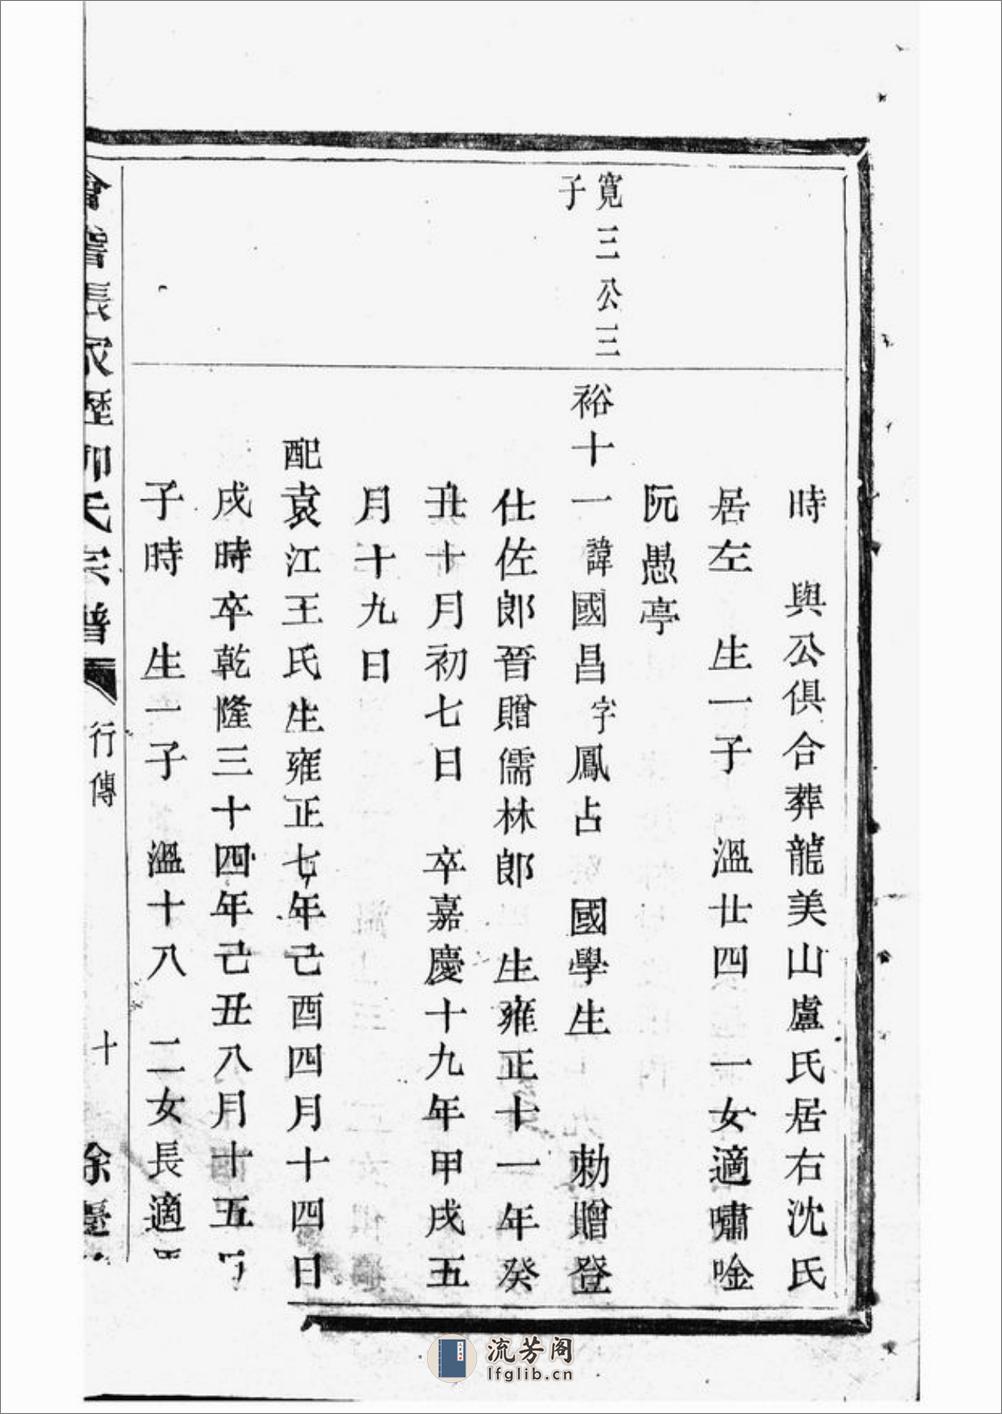 時　與公俱合葬龍美山盧氏居右沈氏
居左　生一子　溫廿四　一女適嘯唫
阮愚亭
寬三公三
子
裕十一諱國昌字鳳占　國學生　勅贈登
仕佐郎晉贈儒林郎　生雍正十一年癸
丑十月初七日　卒嘉慶十九年甲戌五
月十九日
配袁江王氏生雍正七年己酉四月十四日
戌時卒乾隆三十四年己丑八月十五
子時　生一子　溫十八　二女長適
會稽張家瀝郭氏宗譜
行傳
十
流芳阁
lfglib.cn